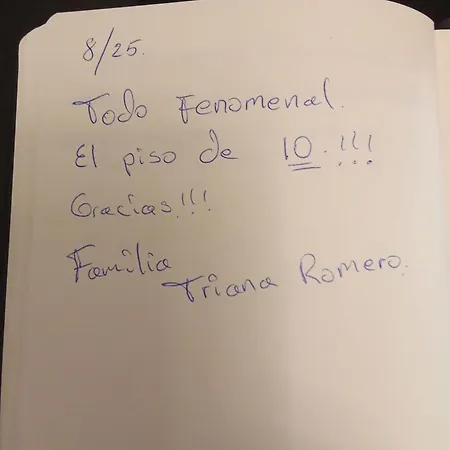 8/25.
Todo Fenomenal.
El piso de 10.!!!
Gracias!!!
Familia
Triana Romero.